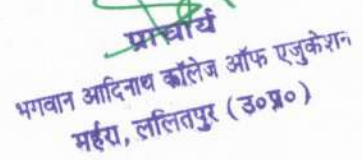 प्राचार्य
भगवान आदिनाथ कॉलेज ऑफ एजुकेशन
मर्हरा, ललितपुर (उ०प्र०)